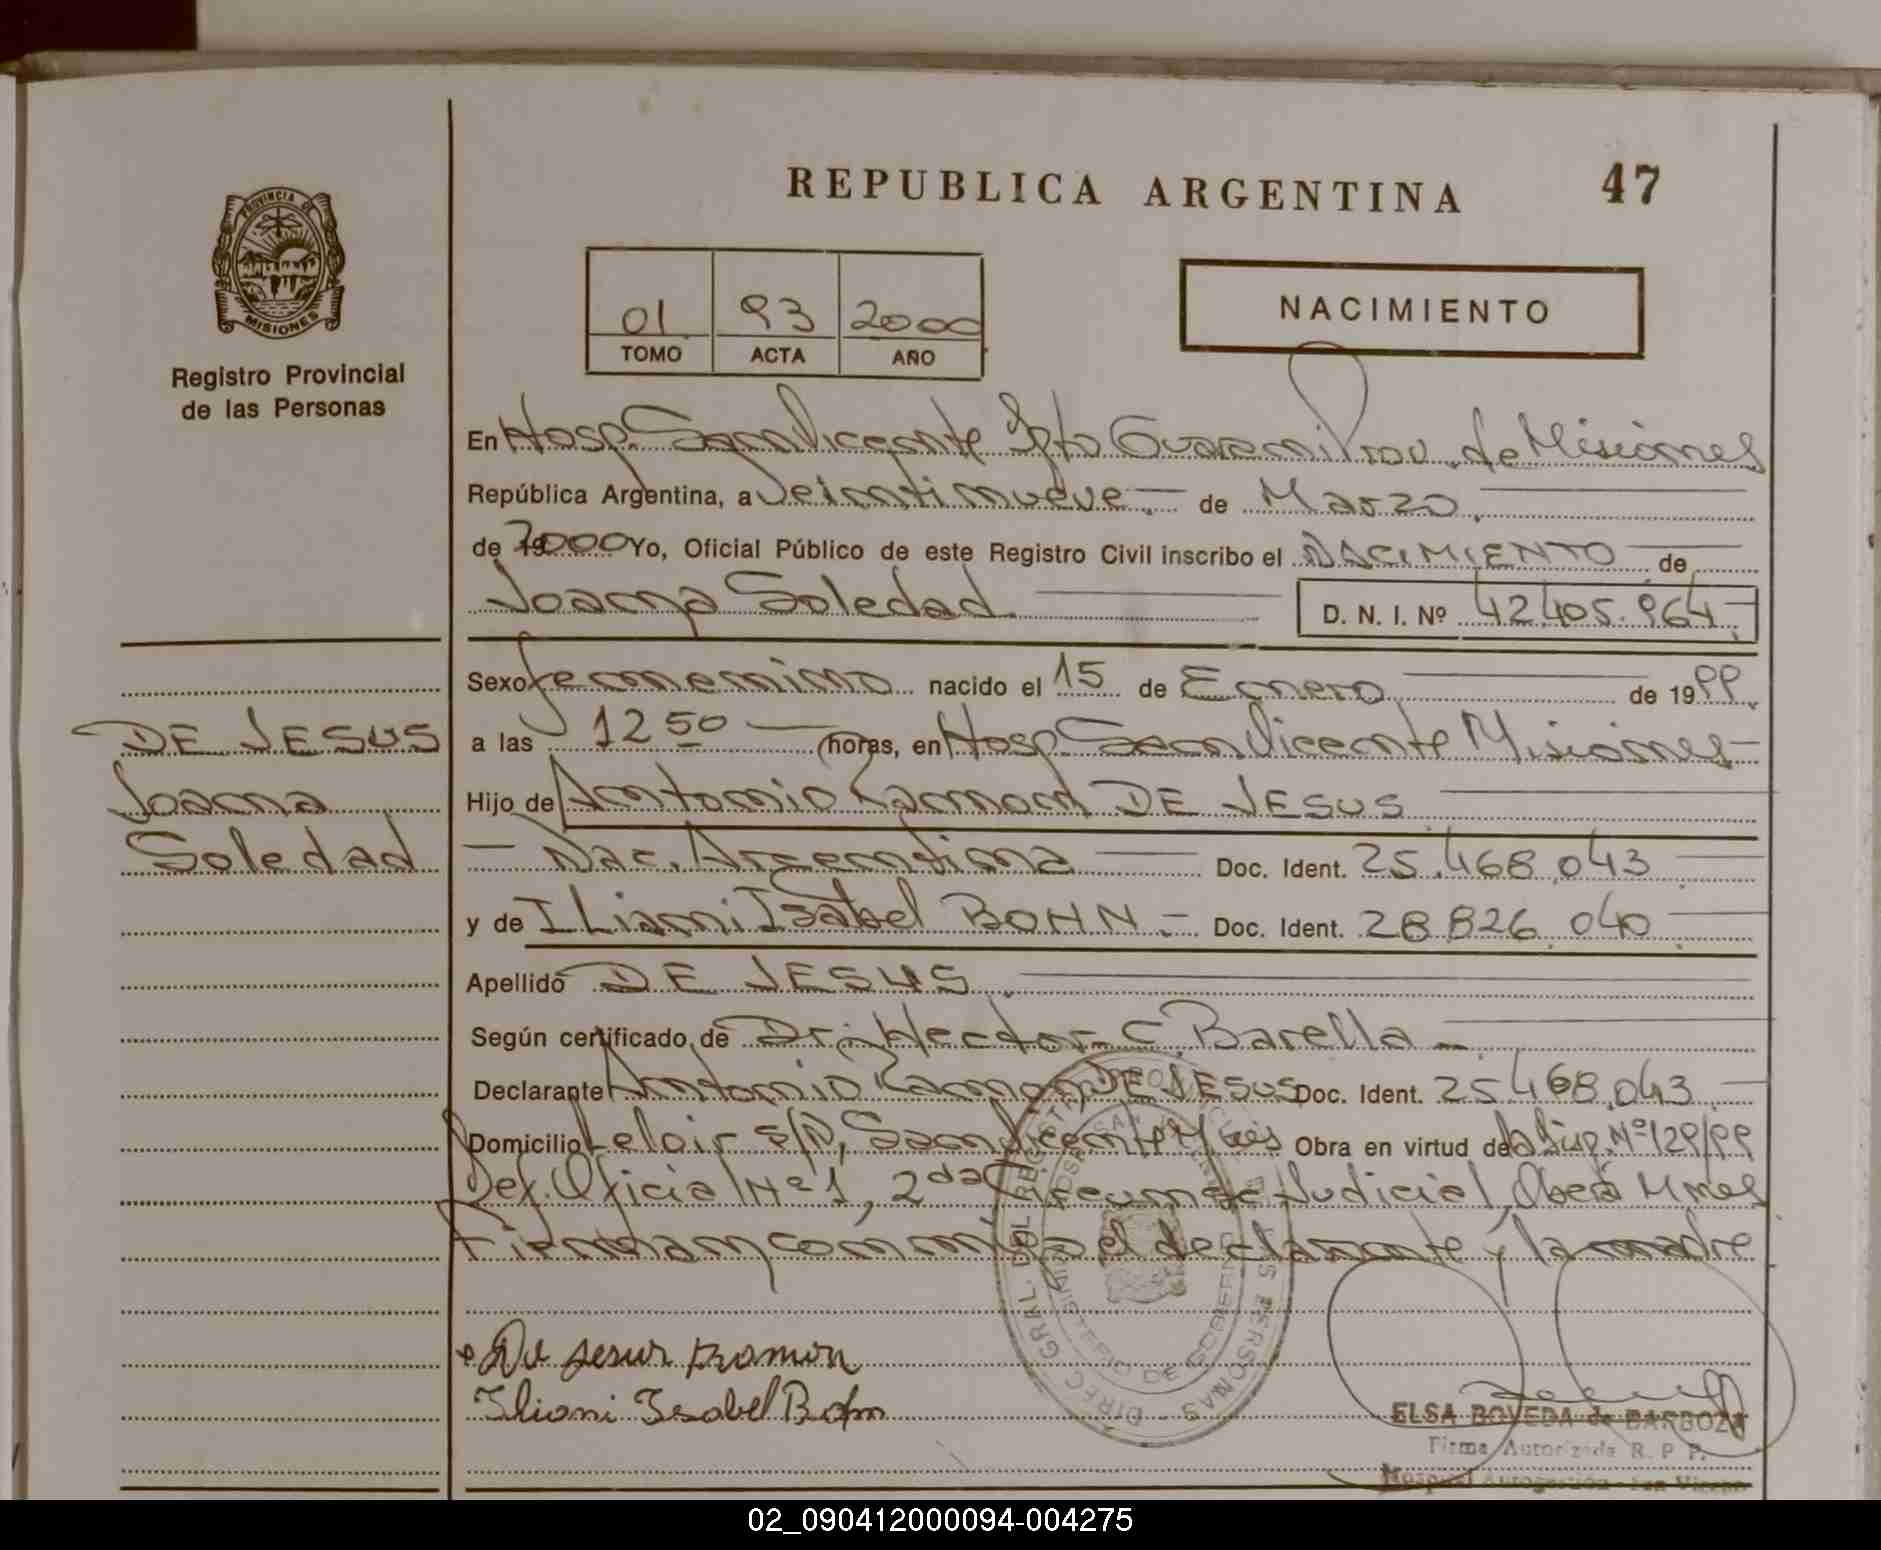 REPUBLICA ARGENTINA 47
PROVINCIA DE
MISIONES
Registro Provincial
de las Personas
01 93 2000
TOMO ACTA AÑO
NACIMIENTO
En Hosp. San Vicente Dpto Guarani Prov. de Misiones
República Argentina, a Veintinueve.- de Marzo.
de 2000 Yo, Oficial Público de este Registro Civil inscribo el NACIMIENTO de
Joana Soledad D. N. I. Nº 42.405.964-
Sexo femenino nacido el 15 de Enero de 1999.
a las 12 50 horas, en Hosp. San Vicente Misiones-
Hijo de Antonio Ramon DE JESUS
- Nac. Argentina Doc. Ident. 25.468.043
y de ILiani Isabel BOHN.- Doc. Ident. 28.826.040
Apellido DE JESUS.
Según certificado de Dr. Hector C. Barella -
Declarante Antonio Ramon DE JESUS Doc. Ident. 25.468.043
Domicilio Leloir S/N, San Vicente Mnes Obra en virtud de la Disp. Nº 129/99
Def. Oficial Nº 1, 2da Circunsc Judicial, Oberá Mnes
Firman conmigo el declarante y la madre
DE JESUS
Joana
Soledad
De Jesus Ramon
Iliani Isabel Bohn
DIREC. GRAL. DEL REGISTRO PROVINCIAL DE LAS PERSONAS
MINISTERIO DE GOBIERNO
HOSP. SAN VICENTE
ELSA BOVEDA de BARBOZA
Firma Autorizada R. P. P.
Hospital Autogestión - San Vicente
02_090412000094-004275